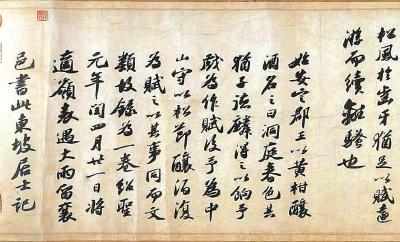 松風於齒牙猶足以賦遠
遊而續離騷也
始安定郡王以黃柑釀
酒名之曰洞庭春色其
猶子德麟得之以餉予
戲為作賦後予為中
山守以松節釀酒復
為賦之以其事同而文
類故錄為一卷紹聖
元年閏四月廿一日將
適嶺表遇大雨留襄
邑書此東坡居士記